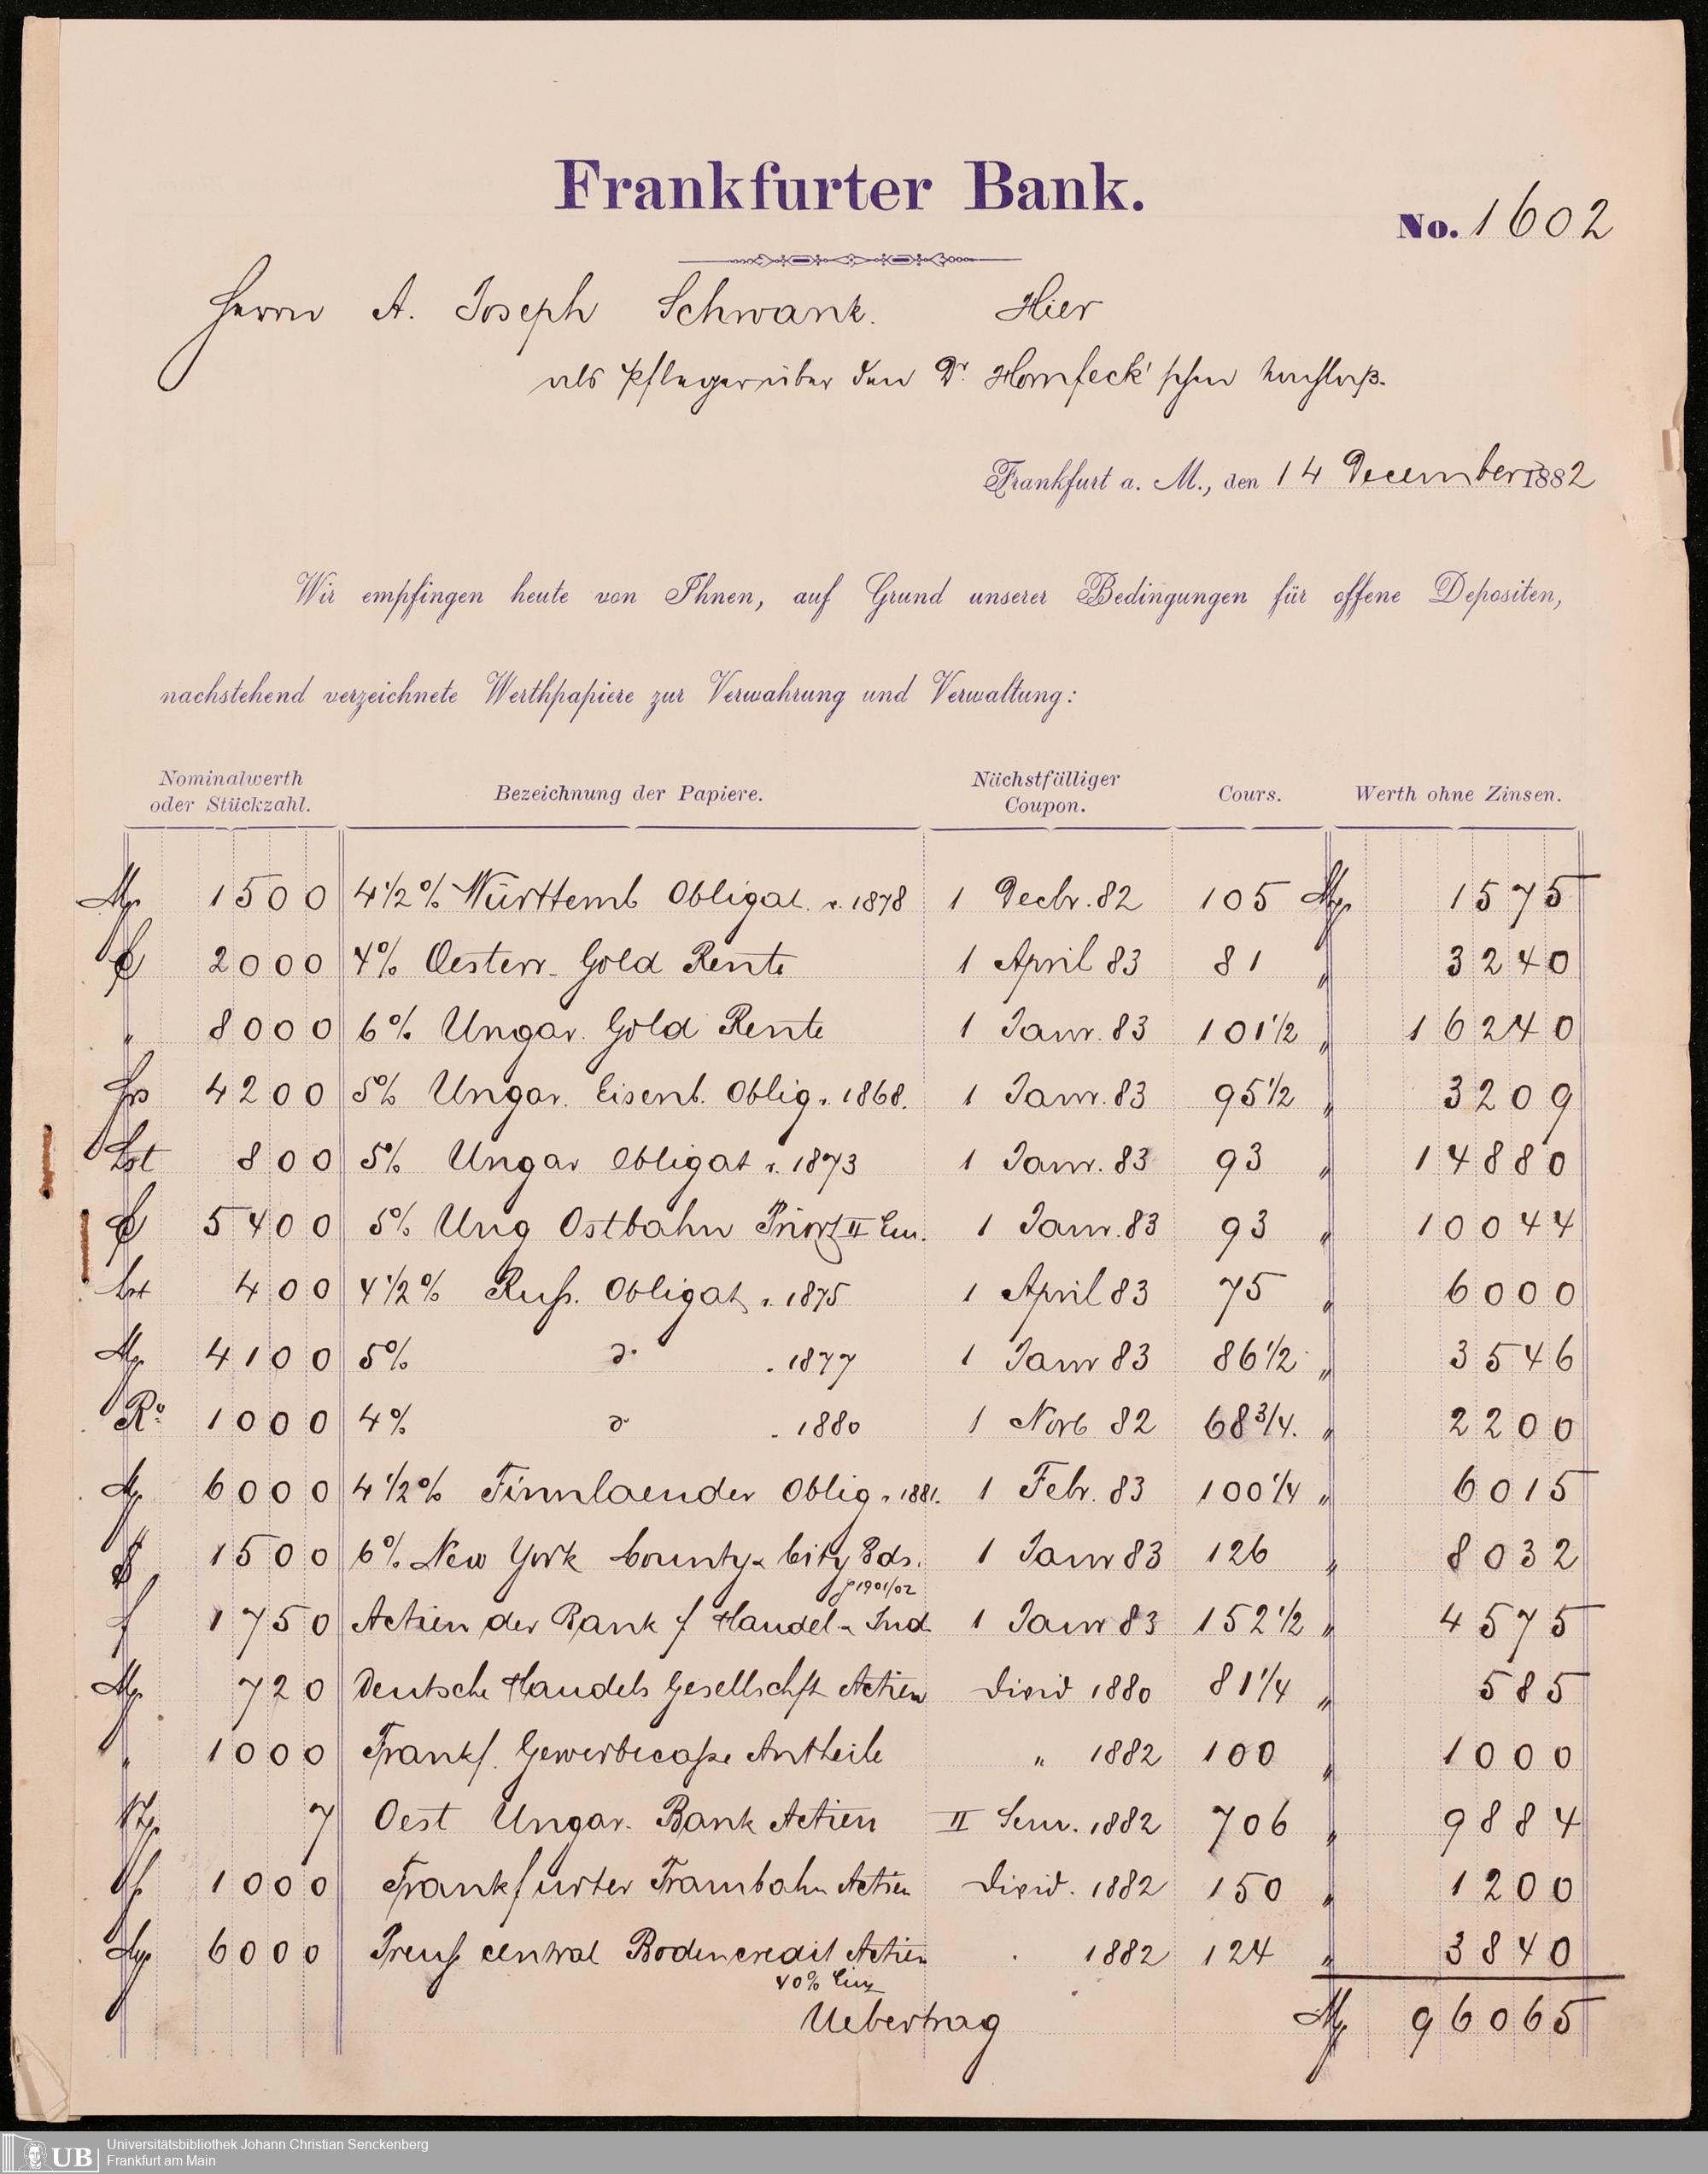 Frankfurter Bank.
No. 1602
Herrn A. Joseph Schwank. Hier
als Pfleger über den Dr. Hornfeck'schen Nachlaß.
Frankfurt a. M., den 14 December 1882
Wir empfingen heute von Ihnen, auf Grund unserer Bedingungen für offene Depositen,
nachstehend verzeichnete Werthpapiere zur Verwahrung und Verwaltung:
Nominalwerth oder Stückzahl. Bezeichnung der Papiere. Nächstfälliger Coupon. Cours. Werth ohne Zinsen.
M 1500 4 1/2 % Württemb Obligat. v. 1878 1 Decbr. 82 105 M 1575
f 2000 4% Oesterr. Gold Rente 1 April 83 81 " 3240
" 8000 6% Ungar. Gold Rente 1 Janr. 83 101 1/2 " 16240
frs 4200 5% Ungar. Eisenb. Oblig v. 1868. 1 Janr. 83 95 1/2 " 3209
Lst 800 5% Ungar Obligat v. 1873 1 Janr. 83 93 " 14880
f 5400 5% Ung Ostbahn Priort II Em. 1 Janr. 83 93 " 10044
Lst 400 4 1/2 % Ruß. Obligat v. 1875 1 April 83 75 " 6000
M 4100 5% do . 1877 1 Janr 83 86 1/2 " 3546
Ro 1000 4% do . 1880 1 Novb 82 68 3/4. " 2200
M 6000 4 1/2 % Finnlaender Oblig v. 1881. 1 Febr. 83 100 1/4 " 6015
$ 1500 6% New York County & City Bds. 1 Janr 83 126 " 8032
p 1901/02
f 1750 Actien der Bank f Handel u Ind. 1 Janr 83 152 1/2 " 4575
M 720 Deutsche Handels Gesellschft Actien Divid 1880 81 1/4 " 585
" 1000 Frankf. Gewerbecaße Antheile " 1882 100 " 1000
Stk 7 Oest Ungar. Bank Actien II Sem. 1882 706 " 9884
M 1000 Frankfurter Trambahn Actien Divid. 1882 150 " 1200
M 6000 Preuß central Bodencredit Actien . 1882 124 " 3840
40% Einz
Uebertrag M 96065
UB Universitätsbibliothek Johann Christian Senckenberg
Frankfurt am Main